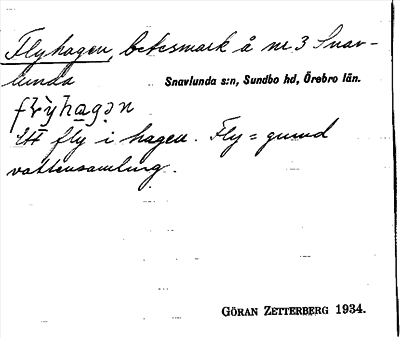 Flyhagen, betesmark å nr 3 Snav-
lunda
Snavlunda s:n, Sundbo hd, Örebro län.
Ett fly i hagen. Fly = grund
vattensamling.
GÖRAN ZETTERBERG 1934.